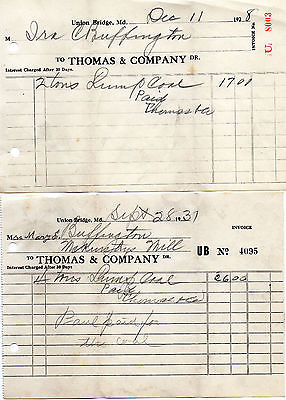 Union Bridge, Md. Dec 11 1928
M Ira C Buffington
INVOICE No U. 8003
TO THOMAS & COMPANY DR.
Interest Charged After 30 Days.
2 tons Lump Coal 17 00
Paid
Thomas & Co
Union Bridge, Md. Sept 28 1937
Mrs Mary E. Buffington INVOICE
Mill
UB No 4095
TO THOMAS & COMPANY DR.
Interest Charged After 30 Days.
4 tons Lump Coal 26.00
Paid
Thomas & Co
Paul paid for
this coal